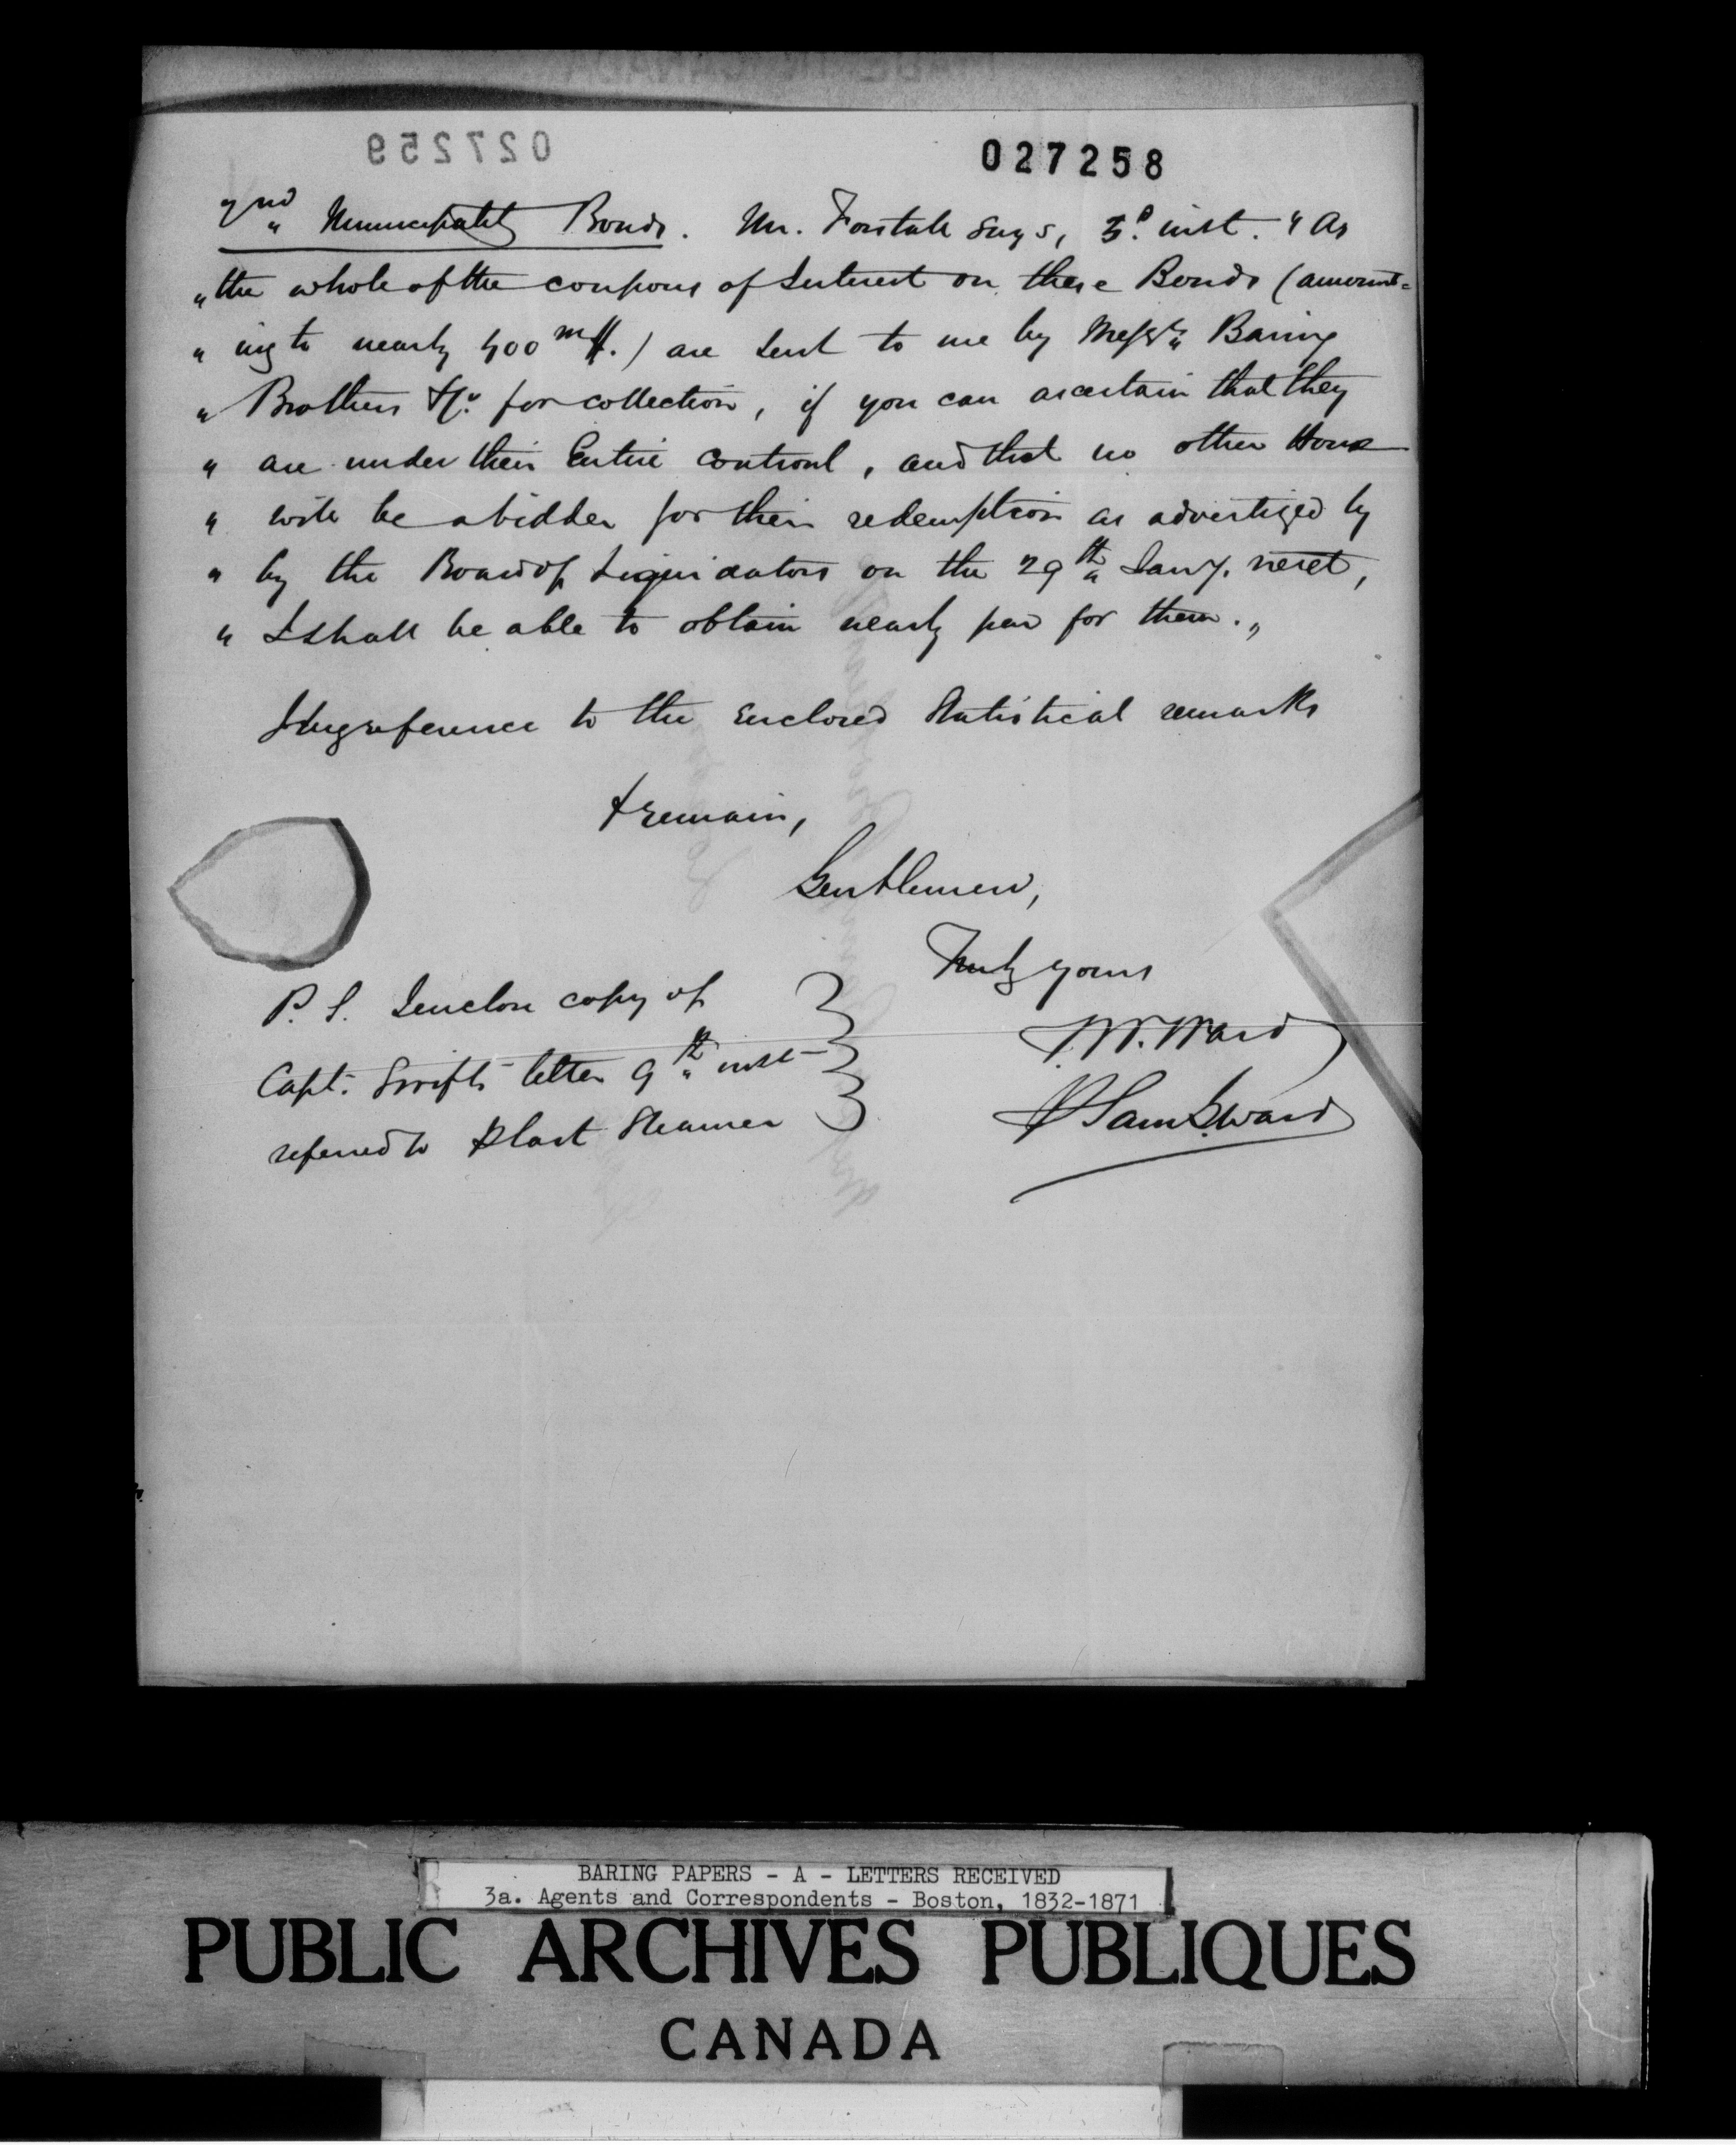 027259
027258
2nd Municipality Bonds. Mr. Forstall says, 3d. inst. "As
"the whole of the coupons of Interest on these Bonds (amount=
" ing to nearly 400 m$.) are sent to me by Messrs. Baring
" Brothers & Co. for collection, if you can ascertain that they
" are under their Entire controul, and that no other House
" will be a bidder for their redemption as advertized by
" by the Board of Liquidators on the 29th Jany. next,
" I shall be able to obtain nearly par for them."
I beg reference to the enclosed Statistical remarks
& remain,
Gentlemen,
Truly yours
T. W. Ward
P Sam G Ward
P. S. I enclose copy of
Capt. Swifts letter 9th inst
referred to last Steamer
BARING PAPERS - A - LETTERS RECEIVED
3a. Agents and Correspondents - Boston, 1832-1871
PUBLIC ARCHIVES PUBLIQUES
CANADA